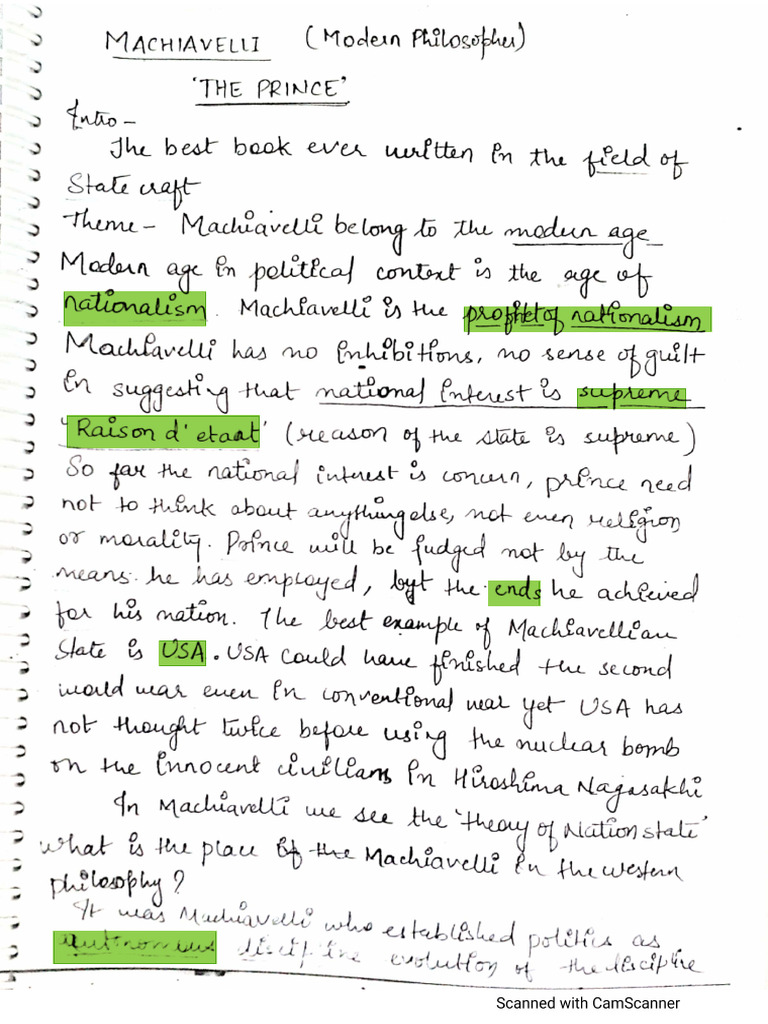 MACHIAVELLI (Modern Philosopher)
'THE PRINCE'
Intro -
The best book ever written in the field of
State craft
Theme - Machiavelli belong to the modern age
Modern age in political context is the age of
nationalism. Machiavelli is the prophet of nationalism
Machiavelli has no inhibitions, no sense of guilt
in suggesting that national interest is supreme
'Raison d'etaat' (reason of the state is supreme)
So far the national interest is concern, prince need
not to think about anything else, not even religion
or morality. Prince will be judged not by the
means he has employed, byt the ends he achieved
for his nation. The best example of Machiavellian
State is USA. USA could have finished the second
world war even in conventional war yet USA has
not thought twice before using the nuclear bomb
on the innocent civilians in Hiroshima Nagasakhi
In Machiavelli we see the 'theory of Nation state'
what is the place of the Machiavelli in the western
philosophy?
It was Machiavelli who established politics as
autonomous discipline evolution of the discipline
Scanned with CamScanner